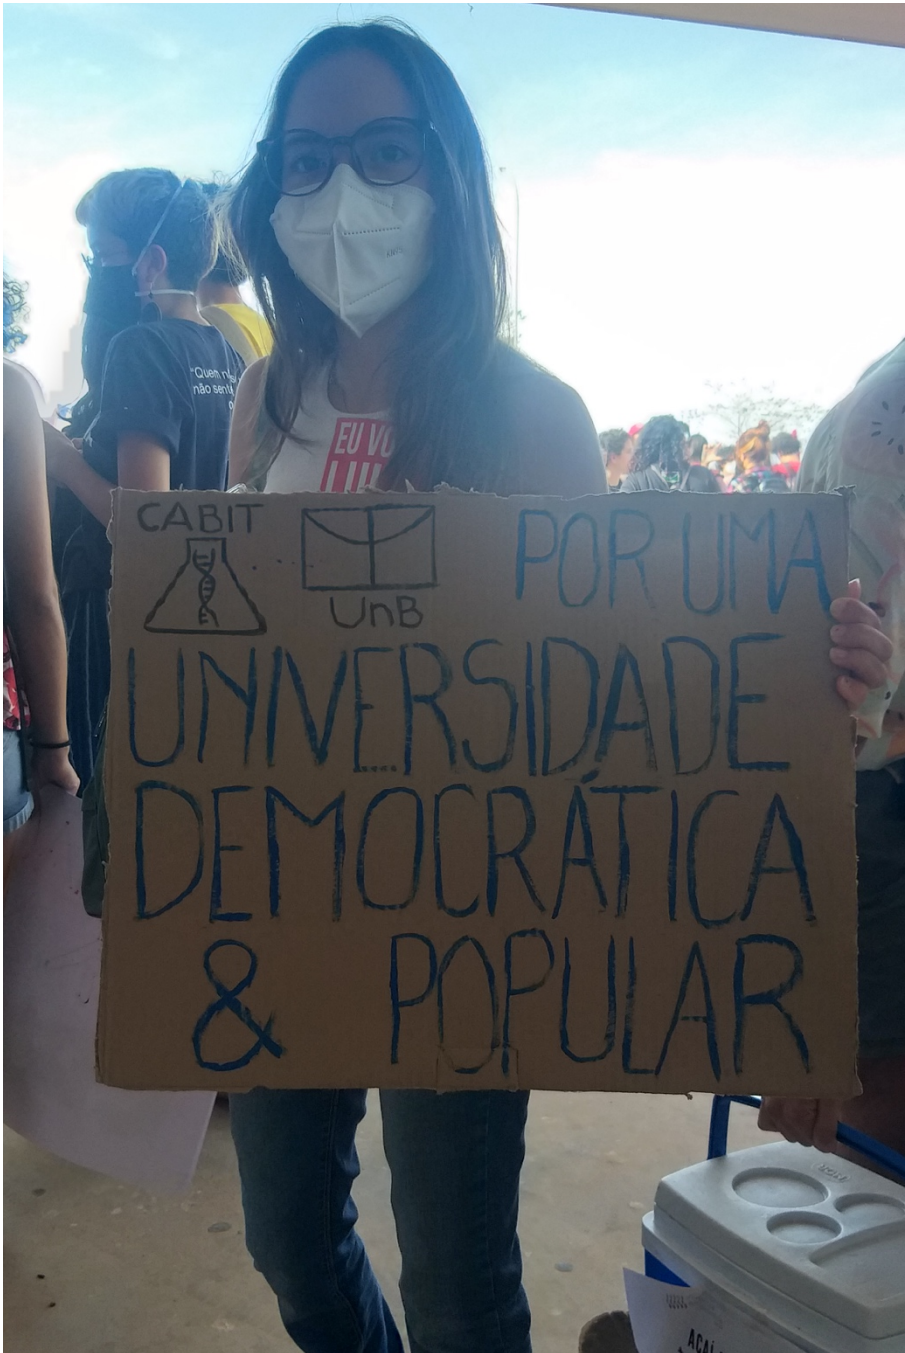 "Quem n
não sent
EU VO
CABIT
UnB
POR UMA
UNIVERSIDADE
DEMOCRÁTICA
& POPULAR
AÇAÍ